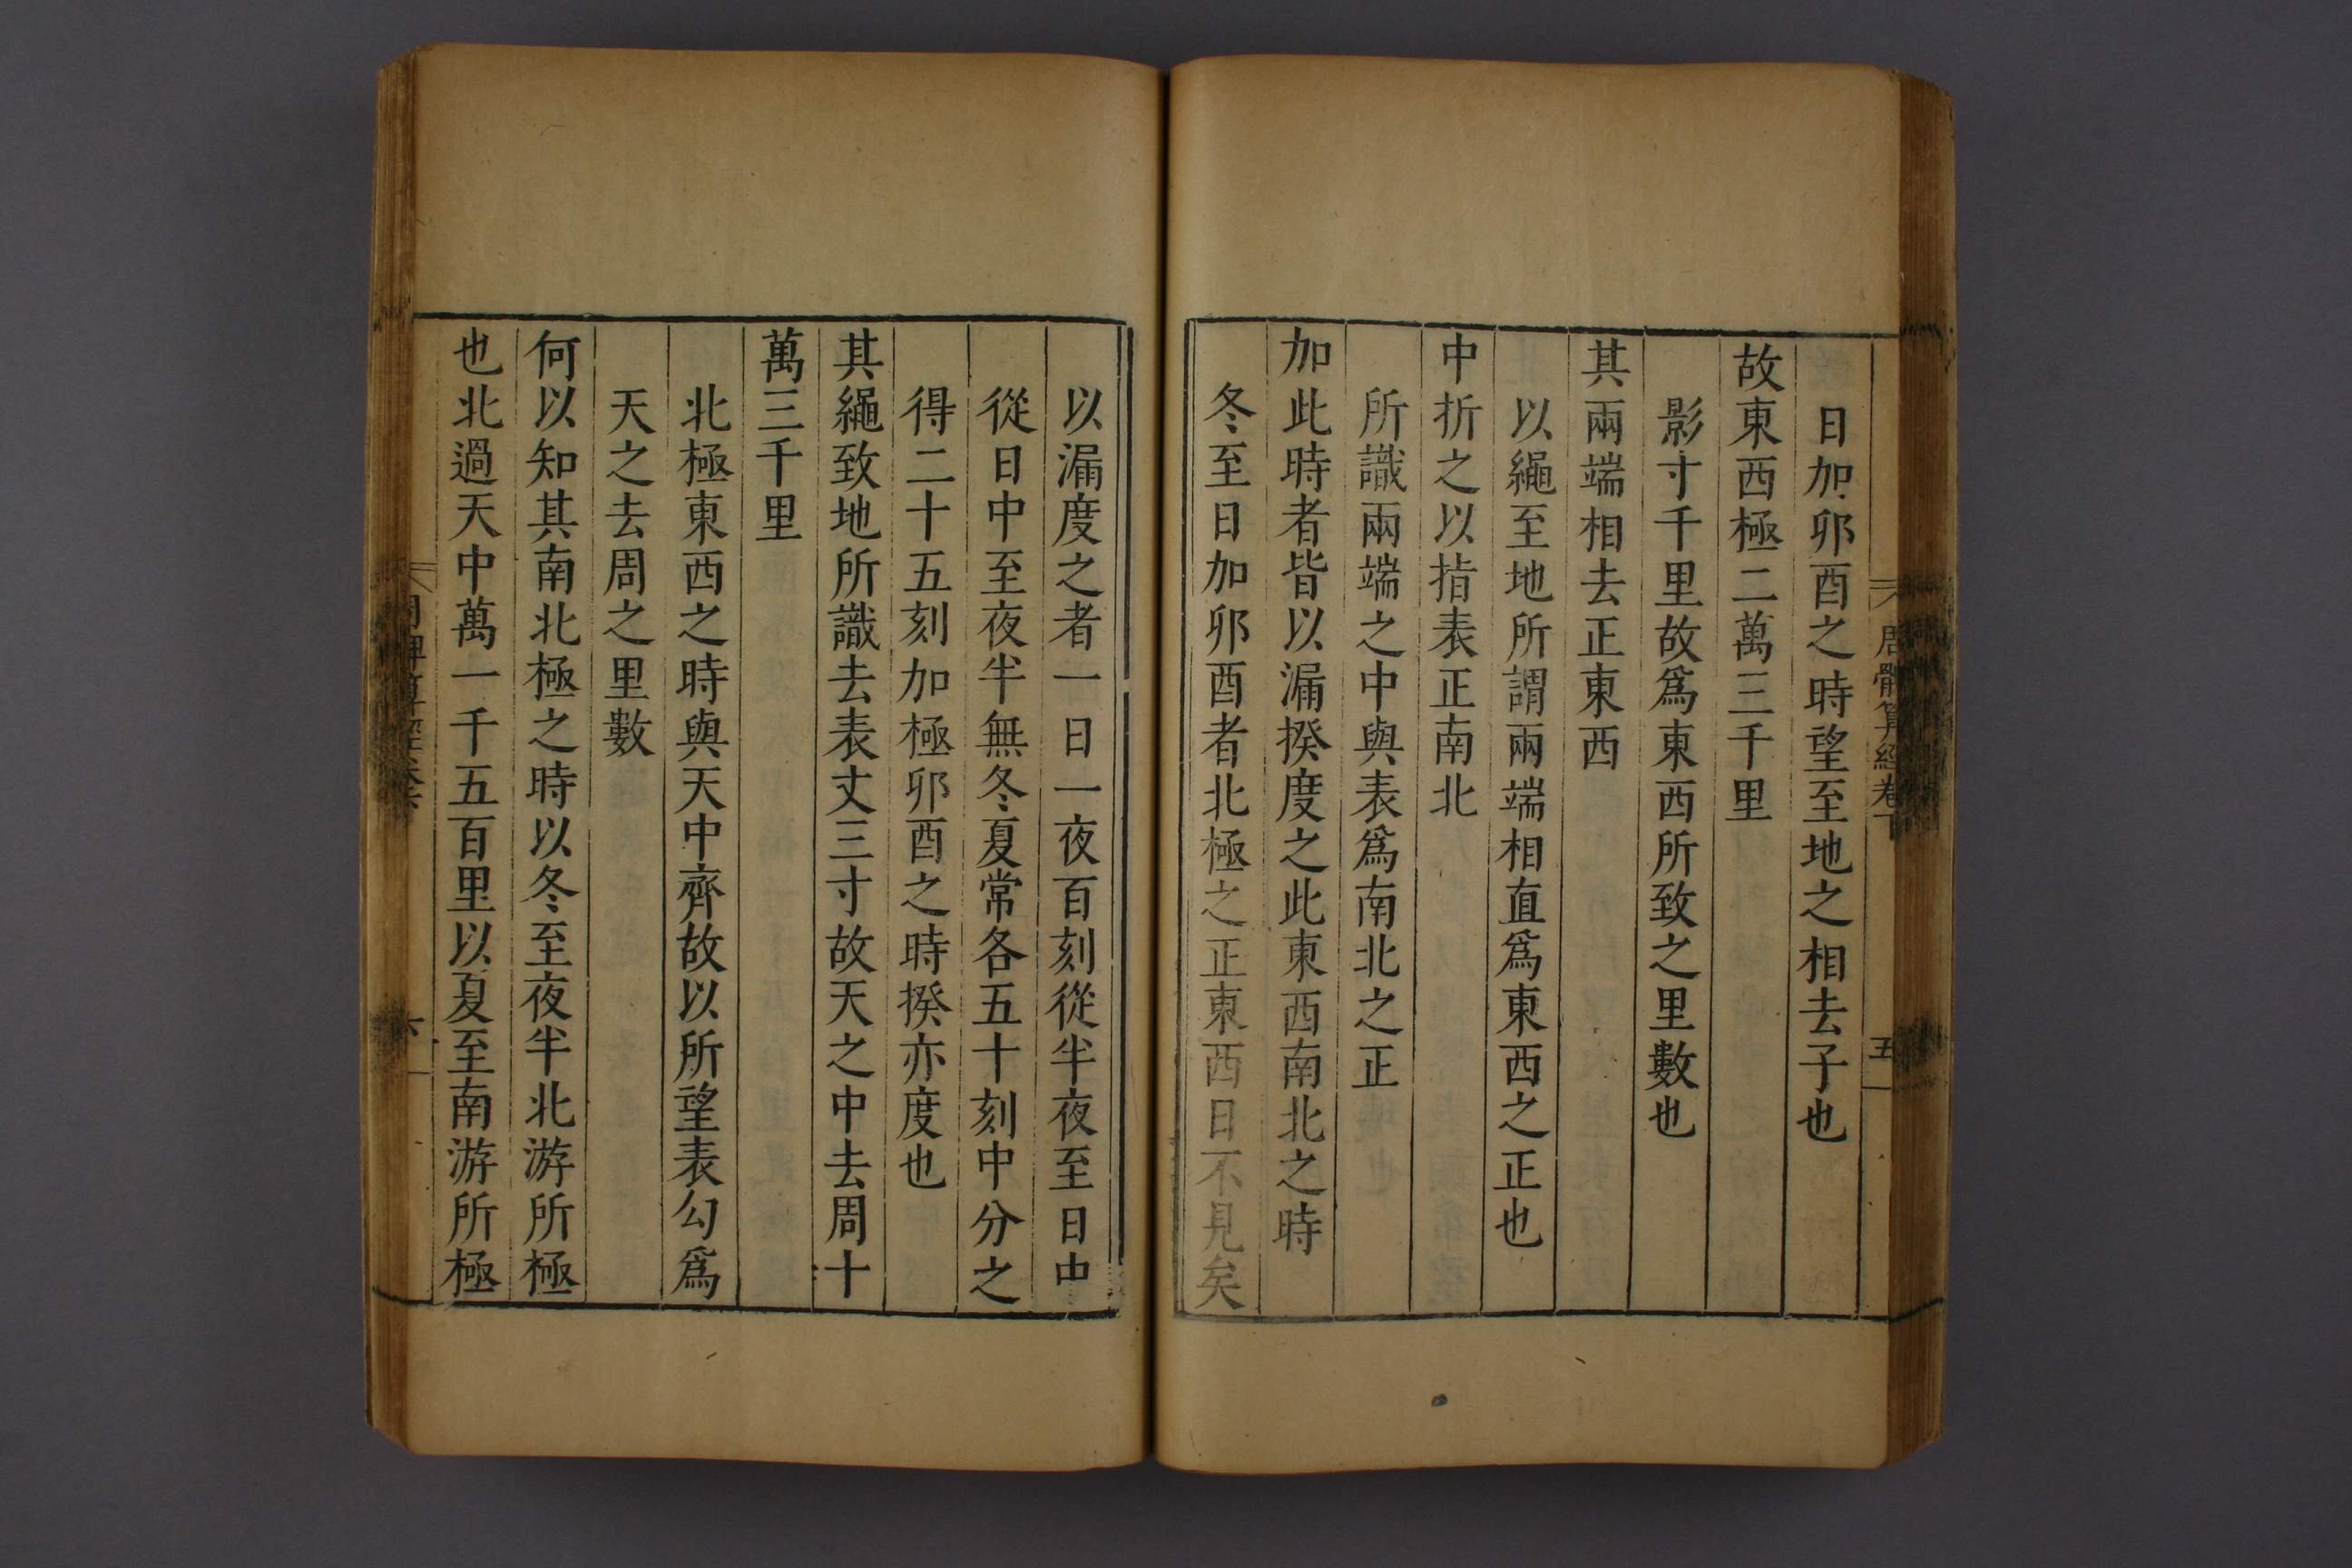 周髀算經卷下
五
日加卯酉之時望至地之相去子也
故東西極二萬三千里
影寸千里故爲東西所致之里數也
其兩端相去正東西
以繩至地所謂兩端相直爲東西之正也
中折之以指表正南北
所識兩端之中與表爲南北之正
加此時者皆以漏揆度之此東西南北之時
冬至日加卯酉者北極之正東西日不見矣
以漏度之者一日一夜百刻從半夜至日中
從日中至夜半無冬夏常各五十刻中分之
得二十五刻加極卯酉之時揆亦度也
其繩致地所識去表丈三寸故天之中去周十
萬三千里
北極東西之時與天中齊故以所望表勾爲
天之去周之里數
何以知其南北極之時以冬至夜半北游所極
也北過天中萬一千五百里以夏至南游所極
六